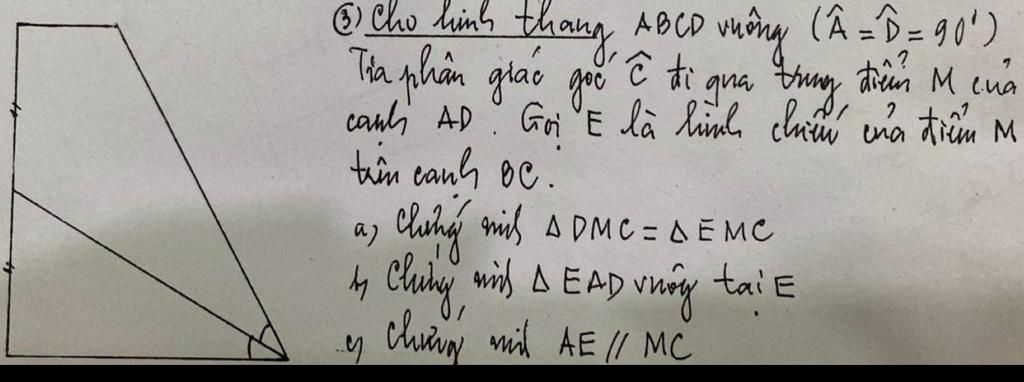 ③ Cho hình thang ABCD vuông (Â = D̂ = 90°)
Tia phân giác góc Ĉ đi qua trung điểm M của
cạnh AD. Gọi E là hình chiếu của điểm M
trên cạnh BC.
a, Chứng minh Δ DMC = Δ EMC
b, Chứng minh Δ EAD vuông tại E
c, Chứng minh AE // MC